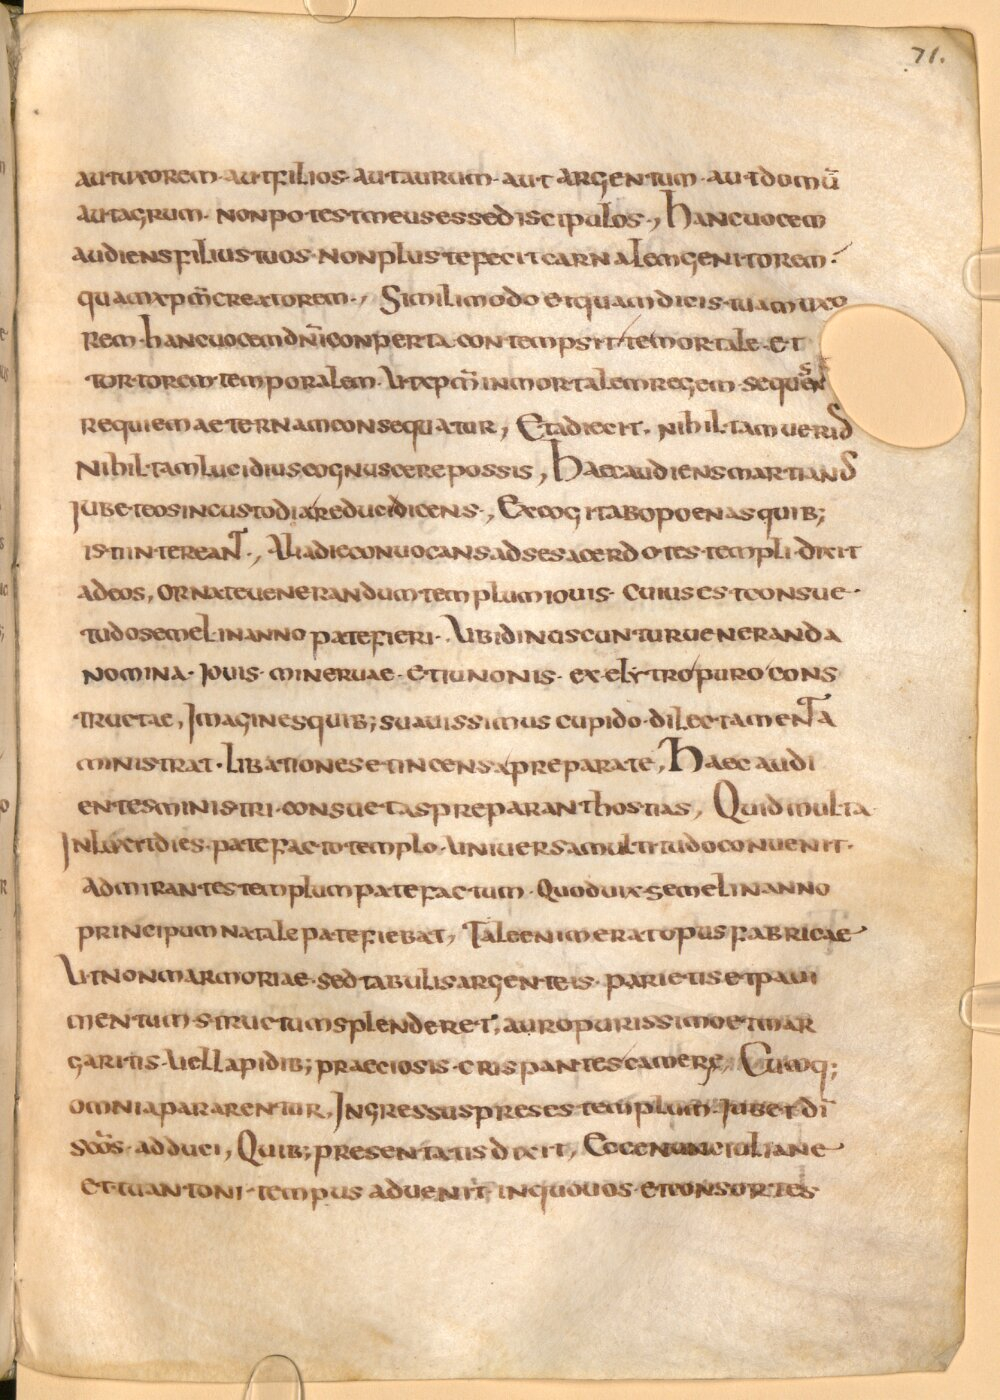 71.
aut uxorem · aut filios · aut aurum · aut argentum · aut domū
aut agrum · non potest meus esse discipulos ·, hanc uocem
audiens filius tuos · non plus te fecit carnalem genitorem ·
quam xpm̄ creatorem ·, Simili modo et quam dicis tuam uxo
rem · hanc uocem dn̄i conperta · contempsit te mortale · et
tortorem temporalem · Ut xpm̄ inmortalem regem · sequens
requiem aeternam consequatur, Et adiecit · nihil tam uerius
nihil tam lucidius cognuscere possis, haec audiens martianus
Jubet eos in custodia reduci dicens ·, Excogitabo poenas quib;
isti intereant ·, Alia die conuocans ad se sacerdotes templi · dixit
ad eos, ornate uenerandum templum iouis · cuius est consue ·
tudo semel in anno patefieri · Ubi dinuscuntur ueneranda
nomina · Jouis · mineruae · et iunonis · ex elytro puro cons
tructae, Imagines quib; suauissimus cupido · dilectamenta
ministrat · Libationes et incensa preparate, haec audi
entes ministri · consuetas preparant hostias, Quid multa
Inluxit dies · patefacto templo · uniuersa multitudo conuenit ·
admirantes templum patefactum · Quod uix semel in anno
principum natale patefiebat, Tale enim erat opus fabricae
Ut non marmoriae · sed tabulis argenteis · parietis et paui
mentum structum splenderet, auro purissimo et mar
garitis · Uel lapidib; praeciosis · crispantes camere, Cumq;
omnia pararentur, Ingressus preses templum · Jubet di
scōs · adduci, Quib; presentatis dixit, Ecce nunc iuliane
et tu antoni · tempus aduenit · in quo uos · et consortes